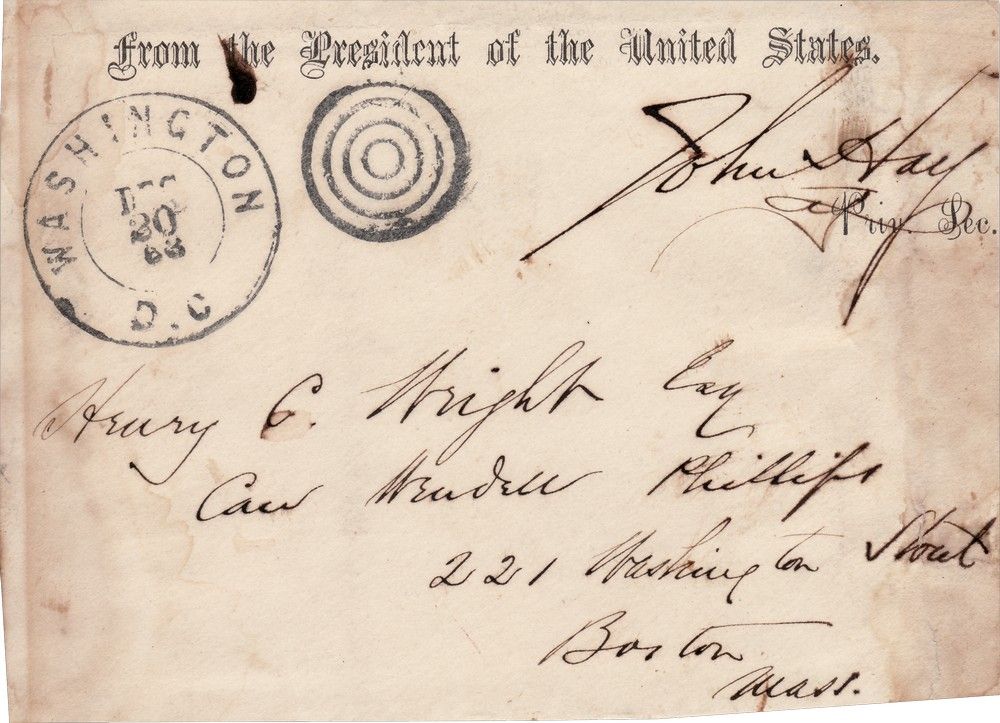 From the President of the United States.
WASHINGTON
DEC
20
63
D.C
John Hay
Priv Sec.
Henry C. Wright Esq
Care Wendell Phillips
221 Washington Street
Boston
Mass.